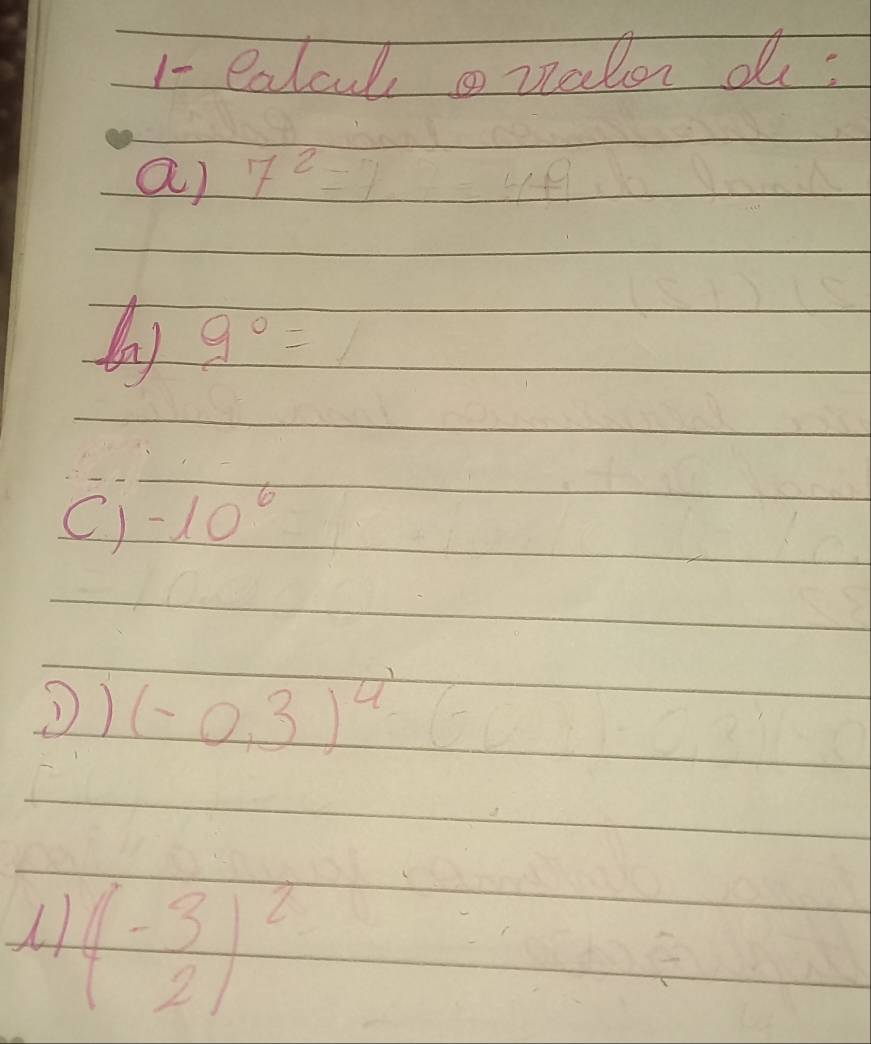 1- Calcule o valor de:
a) 7² = 7.7 = 49
b) 9⁰ = 1
C) -10⁶
D) (-0,3)⁴
e) (-3/2)²